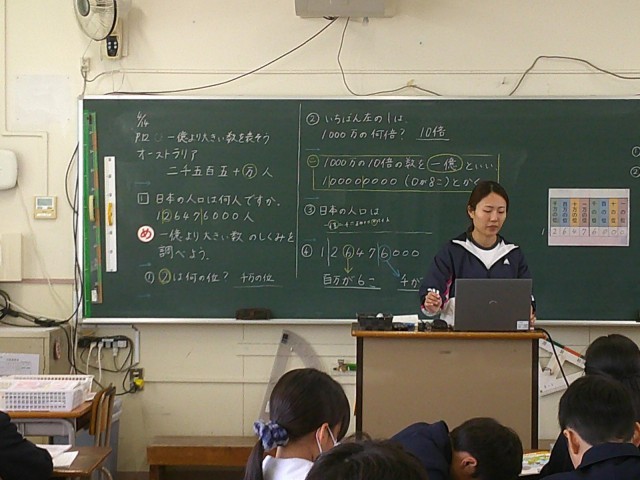 4/14
P.12 一億より大きい数を表そう
オーストラリア
二千五百五十万人
1 日本の人口は何人ですか。
126476000人
め 一億より大きい数のしくみを
調べよう。
① 2は何の位? 千万の位
② いちばん左の1は、
1000万の何倍? 10倍
1000万の10倍の数を一億といい
100000000 (0が8こ)とかく
③ 日本の人口は
④ 126476000
百万が6こ 千が